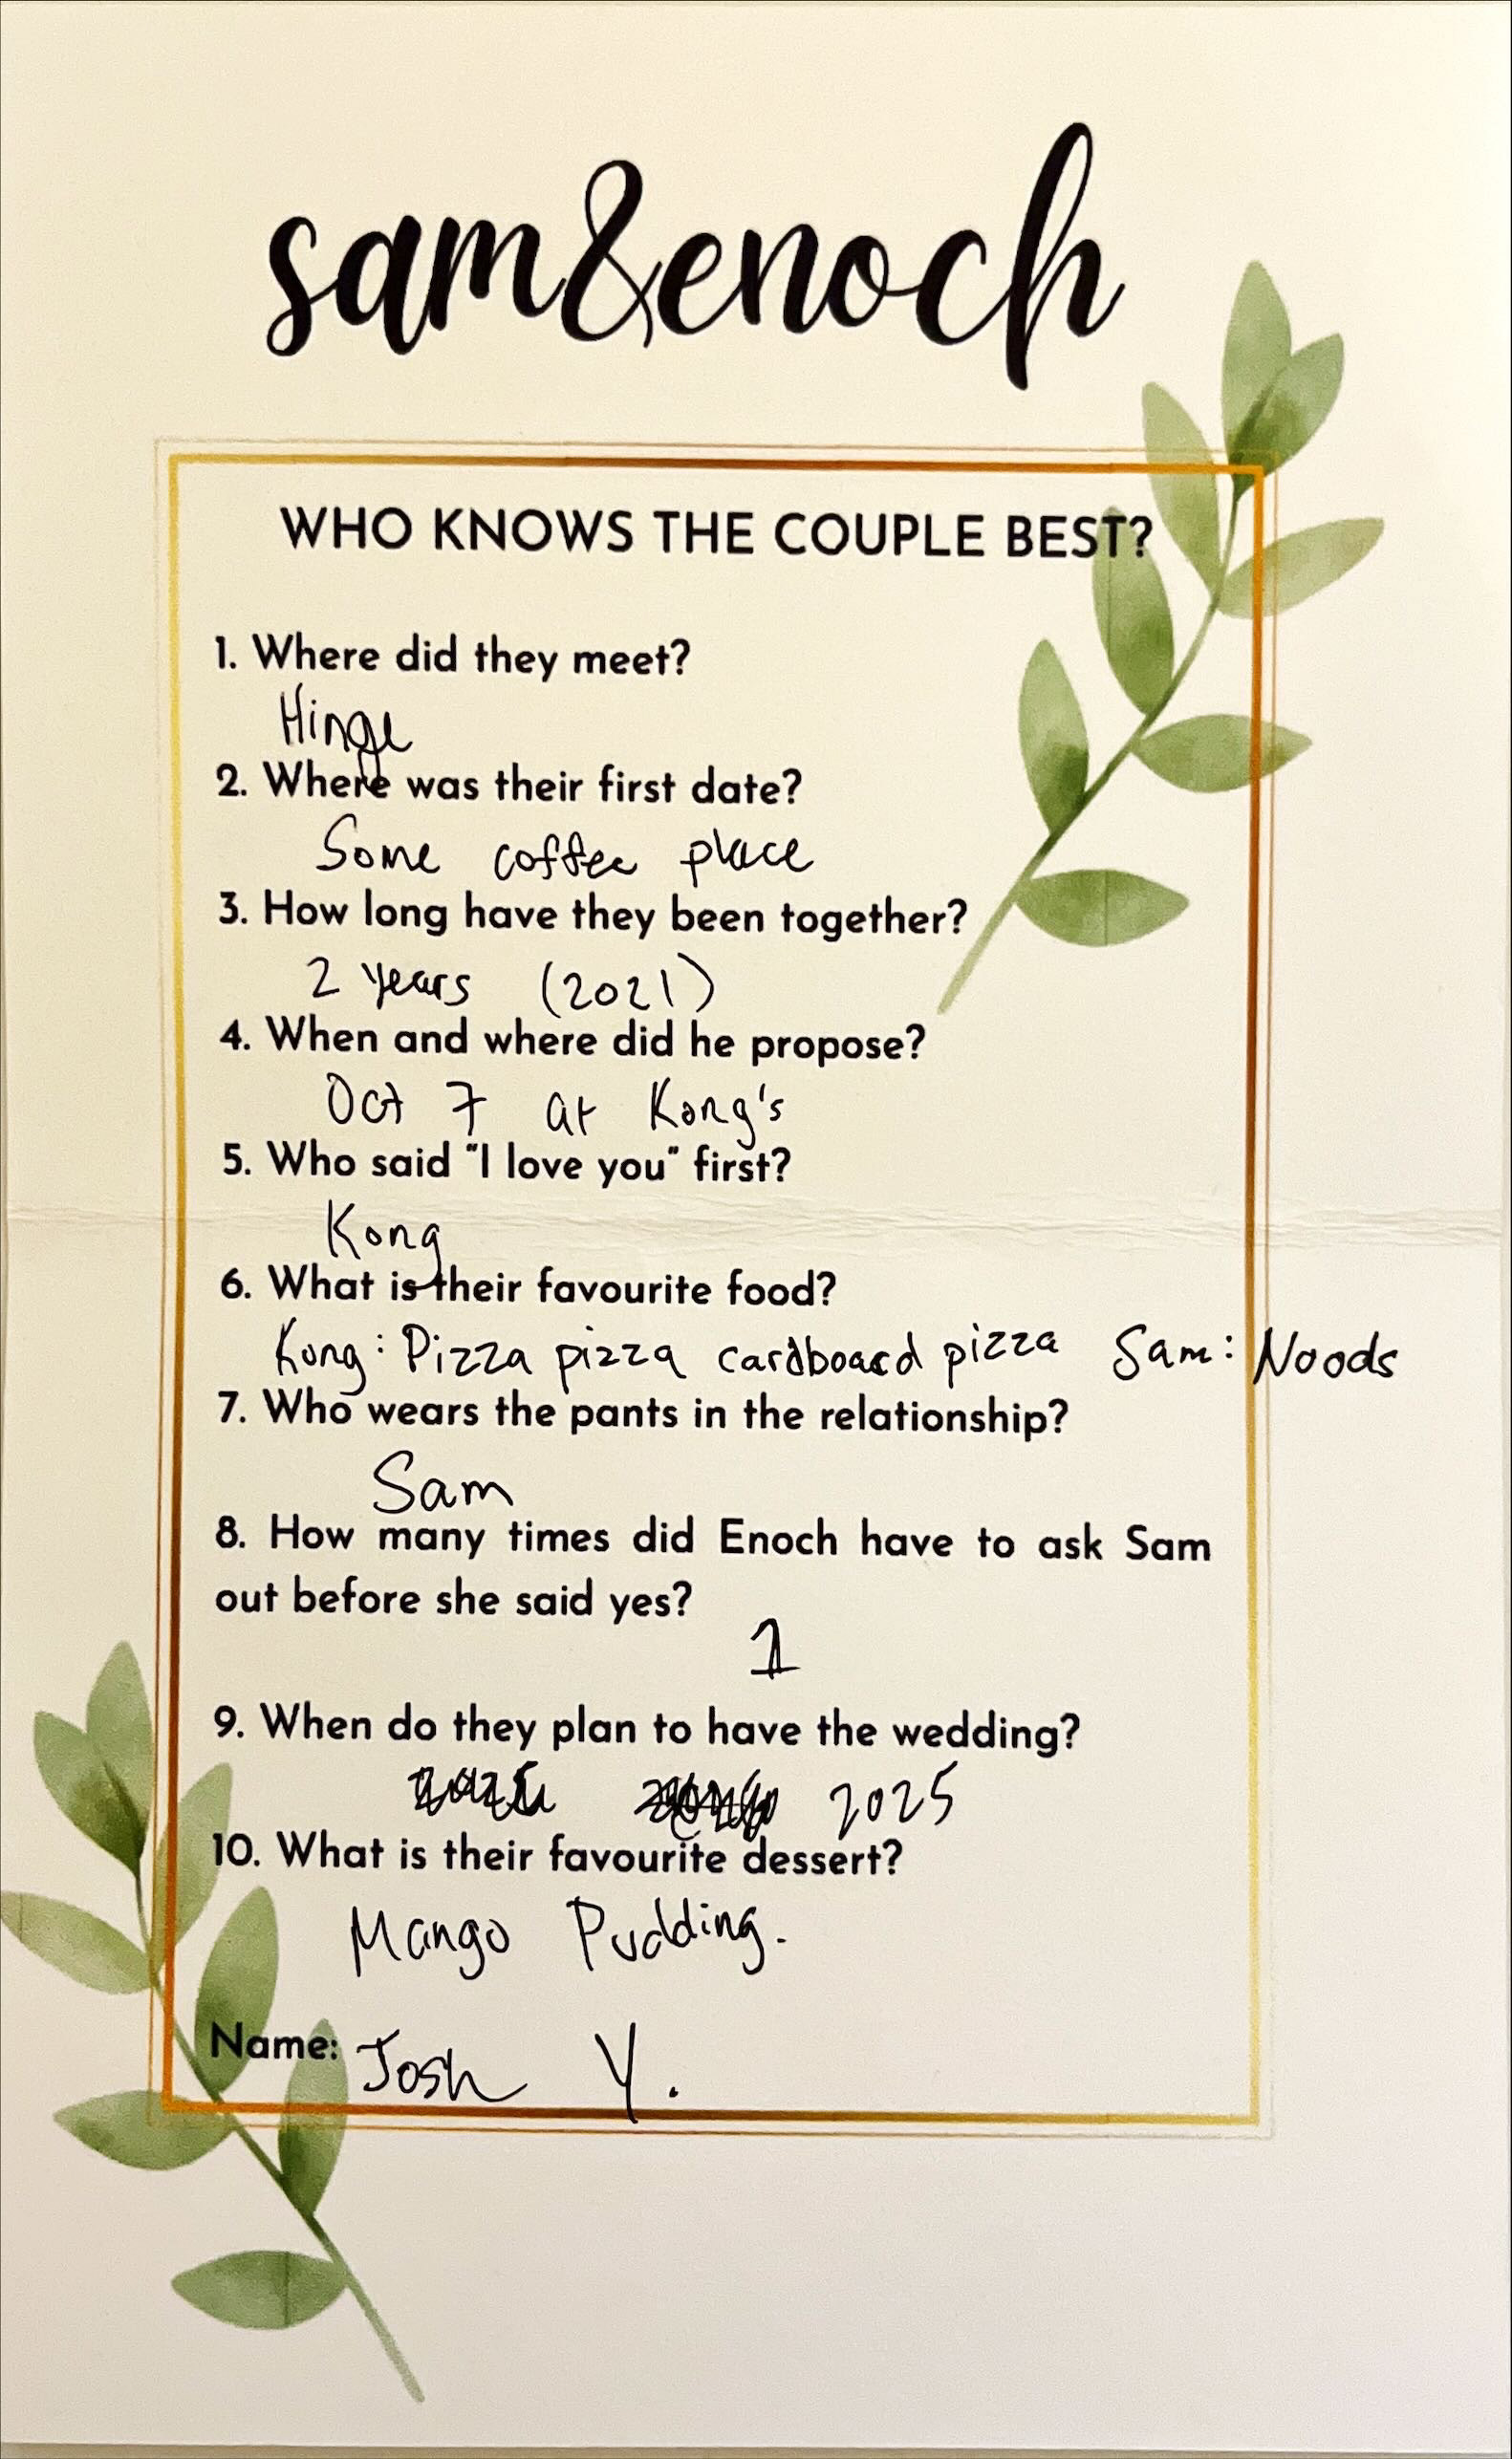 sam&enoch
WHO KNOWS THE COUPLE BEST?
1. Where did they meet?
Hinge
2. Where was their first date?
Some coffee place
3. How long have they been together?
2 years (2021)
4. When and where did he propose?
Oct 7 at Kong's
5. Who said "I love you" first?
Kong
6. What is their favourite food?
Kong: Pizza pizza cardboard pizza Sam: Noods
7. Who wears the pants in the relationship?
Sam
8. How many times did Enoch have to ask Sam
out before she said yes?
1
9. When do they plan to have the wedding?
2025
10. What is their favourite dessert?
Mango Pudding.
Name: Josh Y.